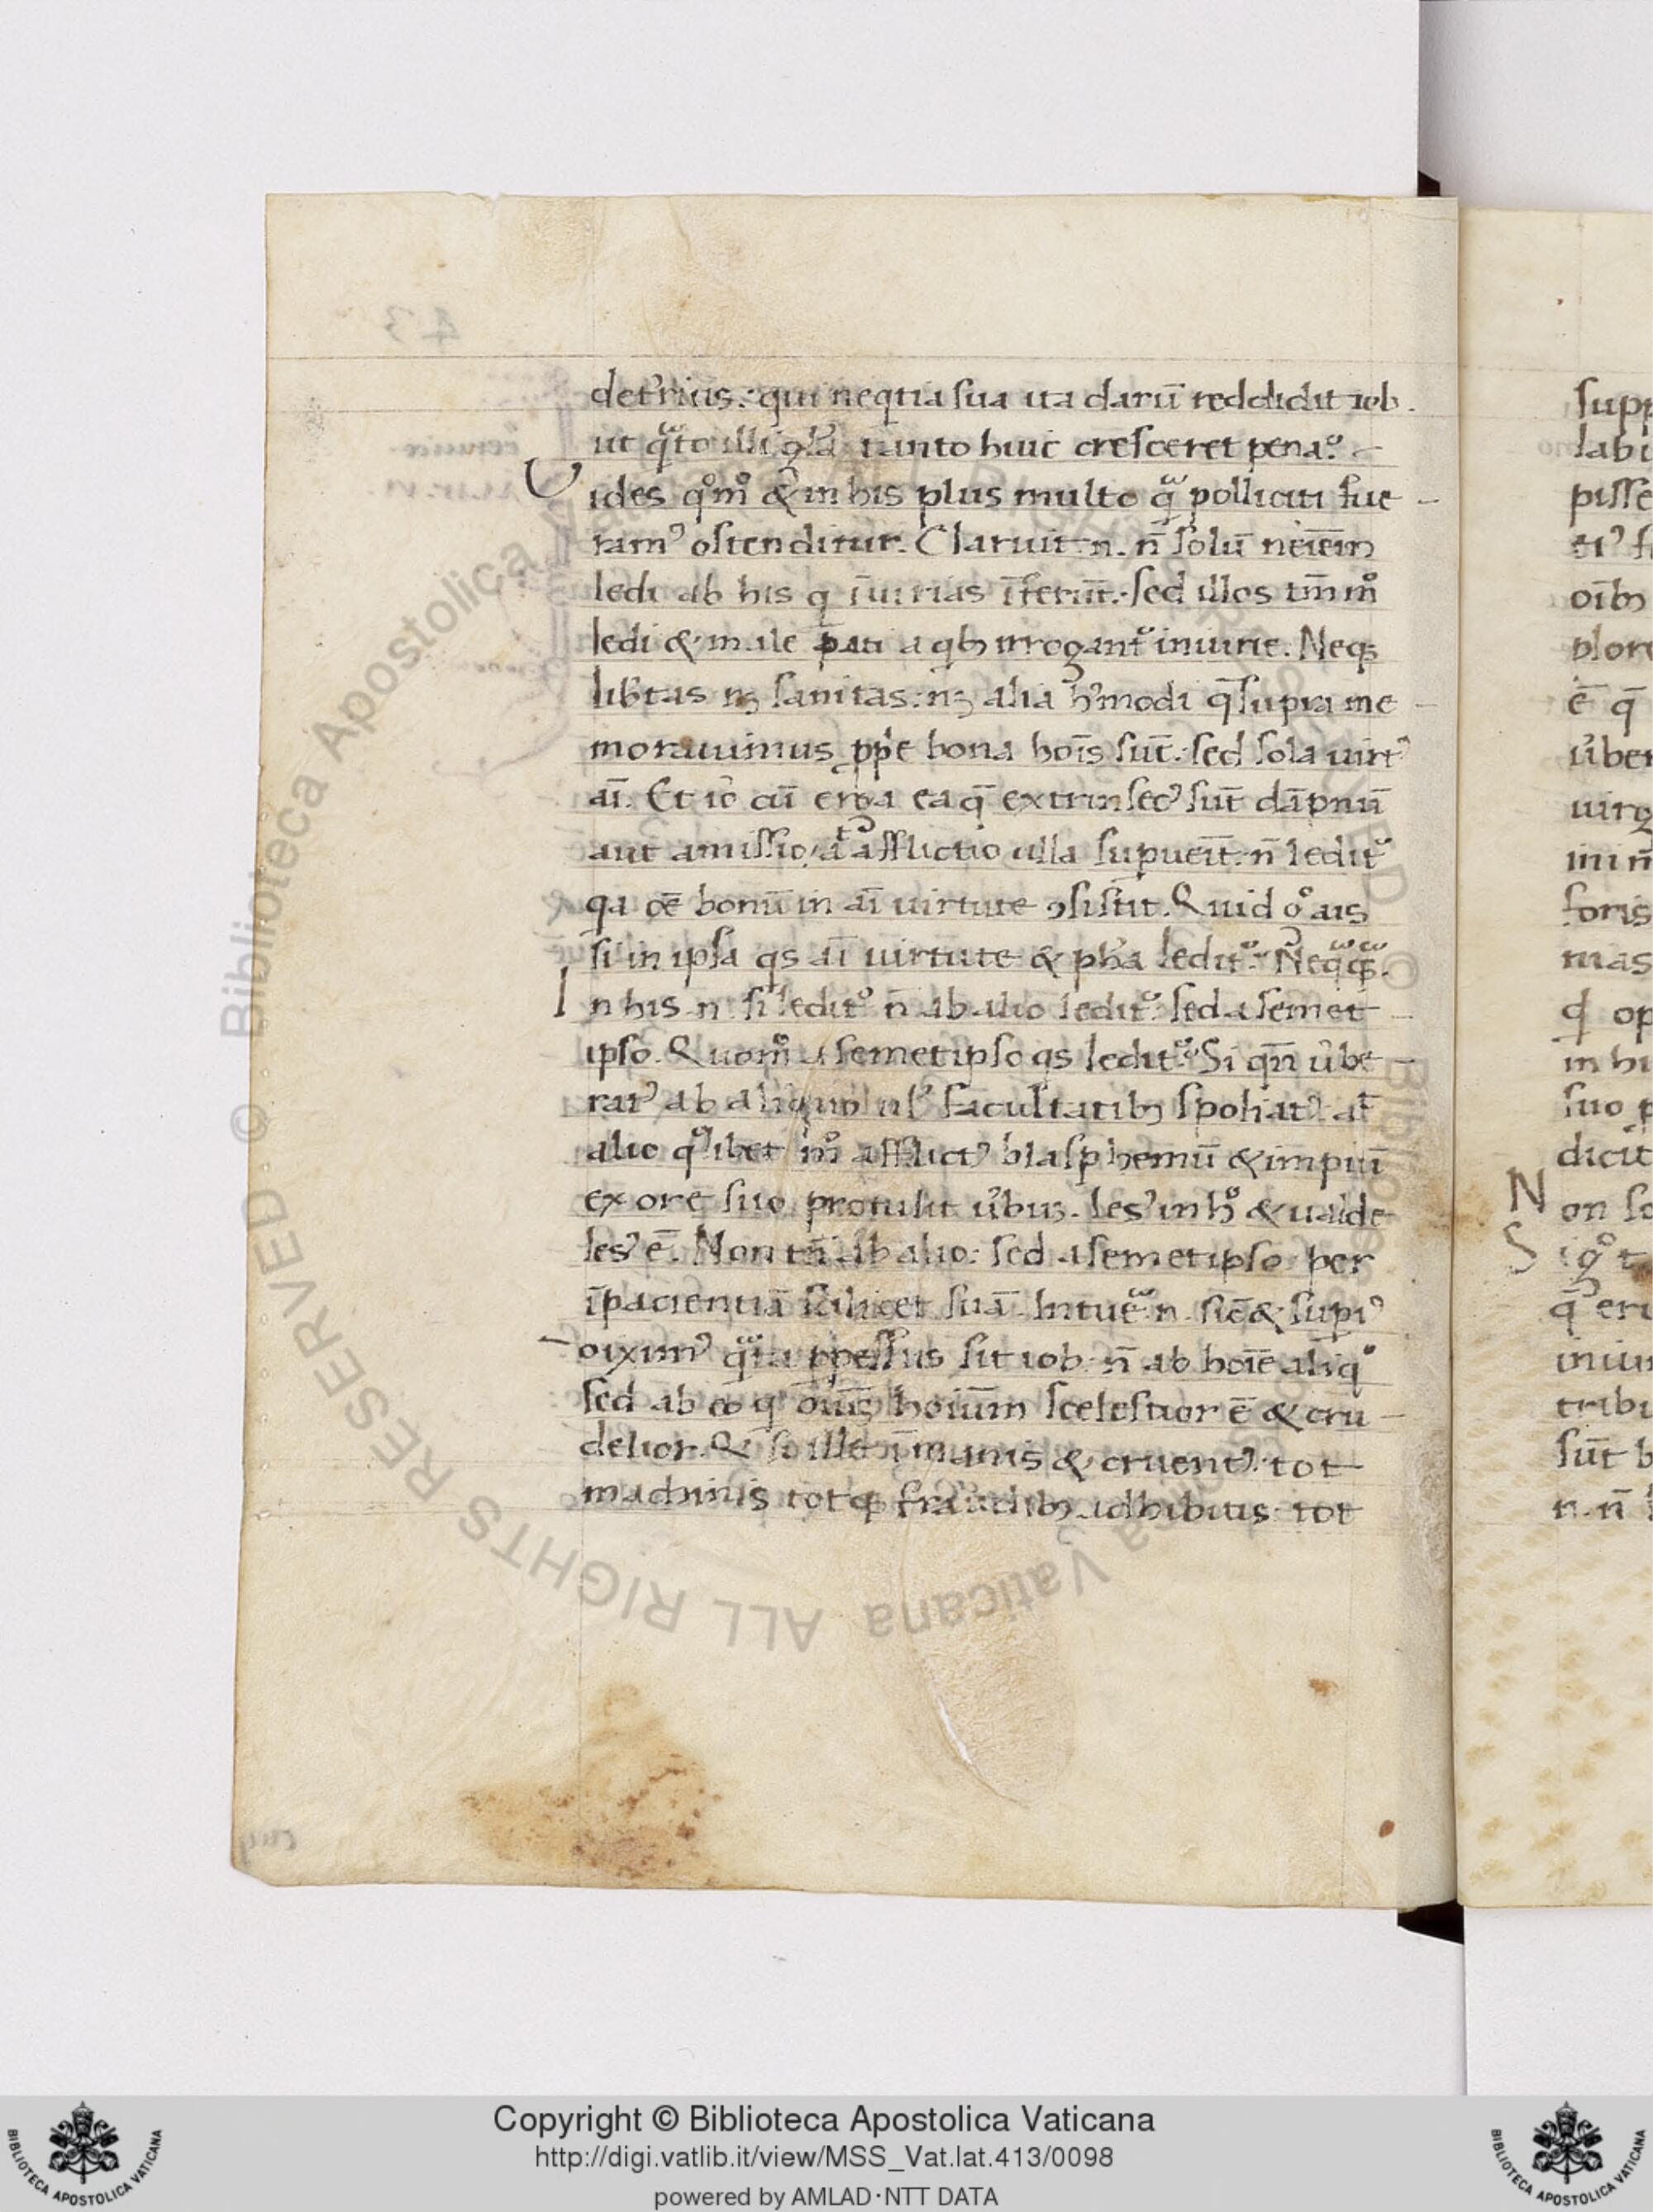 43
det᾿rius. qui neqtia sua ita darū reddidit iob.
ut qᵃto illi gl̄a tanto huic cresceret pena.
Uides qᵒmᵒ & in his plus multo qᵃ polliciti fue-
ram᾿ ostenditur. Claruit .n. n̄ solū nei͞em
ledi ab his q īiurias īferūt. sed illos tm̄mᵒ
ledi & male pati a qb; irrogant᾿ iniurie. Neq;
lib᾿tas n; sanitas. n; alia h᾿modi q̄ supra me-
morauimus ꝓp̄e bona hoīs sūt. sed sola uirt᾿
aī. Et iō cū erga ea q̄ extrinsec᾿ sūt dāpnū
aut amissio, aᵗ afflictio ulla supueīt. n̄ ledit᾿
qa oē bonū in aī uirtute ꝯsistit. Quid ᵒ ais
si in ipsa qs aī uirtute & ph᾿a ledit᾿. Neqᵃqᵃ.
In his .n. si ledit᾿ n̄ ab alio ledit᾿. sed a semet-
ipso. Quomᵒ a semetipso qs ledit᾿. Si qn̄ u᾿be-
rat᾿ ab aliquo ul᾿ facultatib; spoliat᾿ at̄
alio qᵒlibet mᵒ afflict᾿ blasphemū & impiū
ex ore suo protulit u᾿bu;. les᾿ in hᵒ & ualde
les᾿ ē. Non tn̄ ab alio. sed a semetipso per
īpacientiā scilicet suā. Intuē .n. sic̄ & supi᾿
dixim᾿ qᵃta ꝓpessus sit iob. n̄ ab hoīe aliqᵒ
sed ab eo q oīu; hoium scelestior ē & cru-
delior. Qi si ille īmanis & cruent᾿. tot
machinis totq; fraudib; adhibitis. tot
supp
labi
pisse
oīb
plore
ē q̄
u᾿ber
uirg
in in̄
foris
mas
q op
in hi
suo p
dicit
Non so
Si gᵒ t
q̄ eri
iniur
tribu
sūt b
n. n̄
© Biblioteca Apostolica Vaticana ALL RIGHTS RESERVED
Copyright © Biblioteca Apostolica Vaticana
http://digi.vatlib.it/view/MSS_Vat.lat.413/0098
powered by AMLAD·NTT DATA
BIBLIOTECA APOSTOLICA VATICANA
BIBLIOTECA APOSTOLICA VATICANA